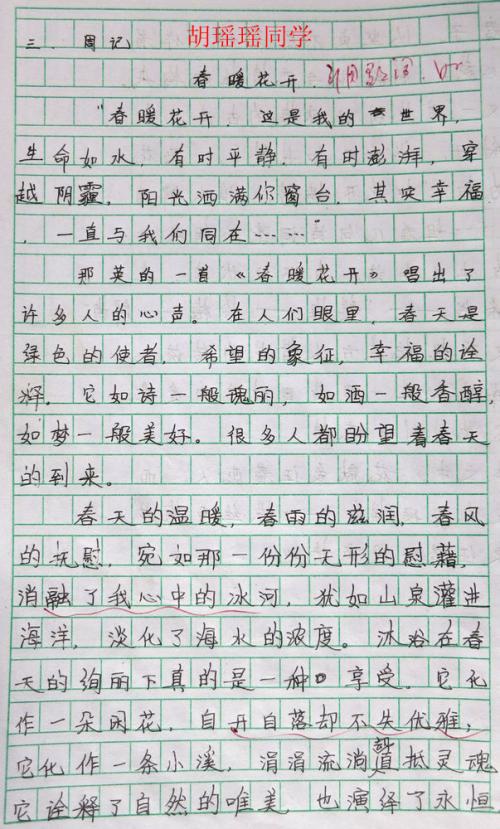 三、周记 胡瑶瑶同学
春暖花开 引用歌词。
"春暖花开,这是我的世界,
生命如水,有时平静,有时澎湃,穿
越阴霾,阳光洒满你窗台,其实幸福
,一直与我们同在……
那英的一首《春暖花开》唱出了
许多人的心声。在人们眼里,春天是
绿色的使者,希望的象征,幸福的诠
释。它如诗一般瑰丽,如酒一般香醇,
如梦一般美好。很多人都盼望着春天
的到来。
春天的温暖,春雨的滋润,春风
的抚慰,宛如那一份份无形的慰藉,
消融了我心中的冰河,犹如山泉灌进
海洋,淡化了海水的浓度。沐浴在春
天的绚丽下真的是一种享受。它化
作一朵闲花,自开自落却不失优雅;
它化作一条小溪,涓涓流淌暂抵灵魂
它诠释了自然的唯美,也演绎了永恒